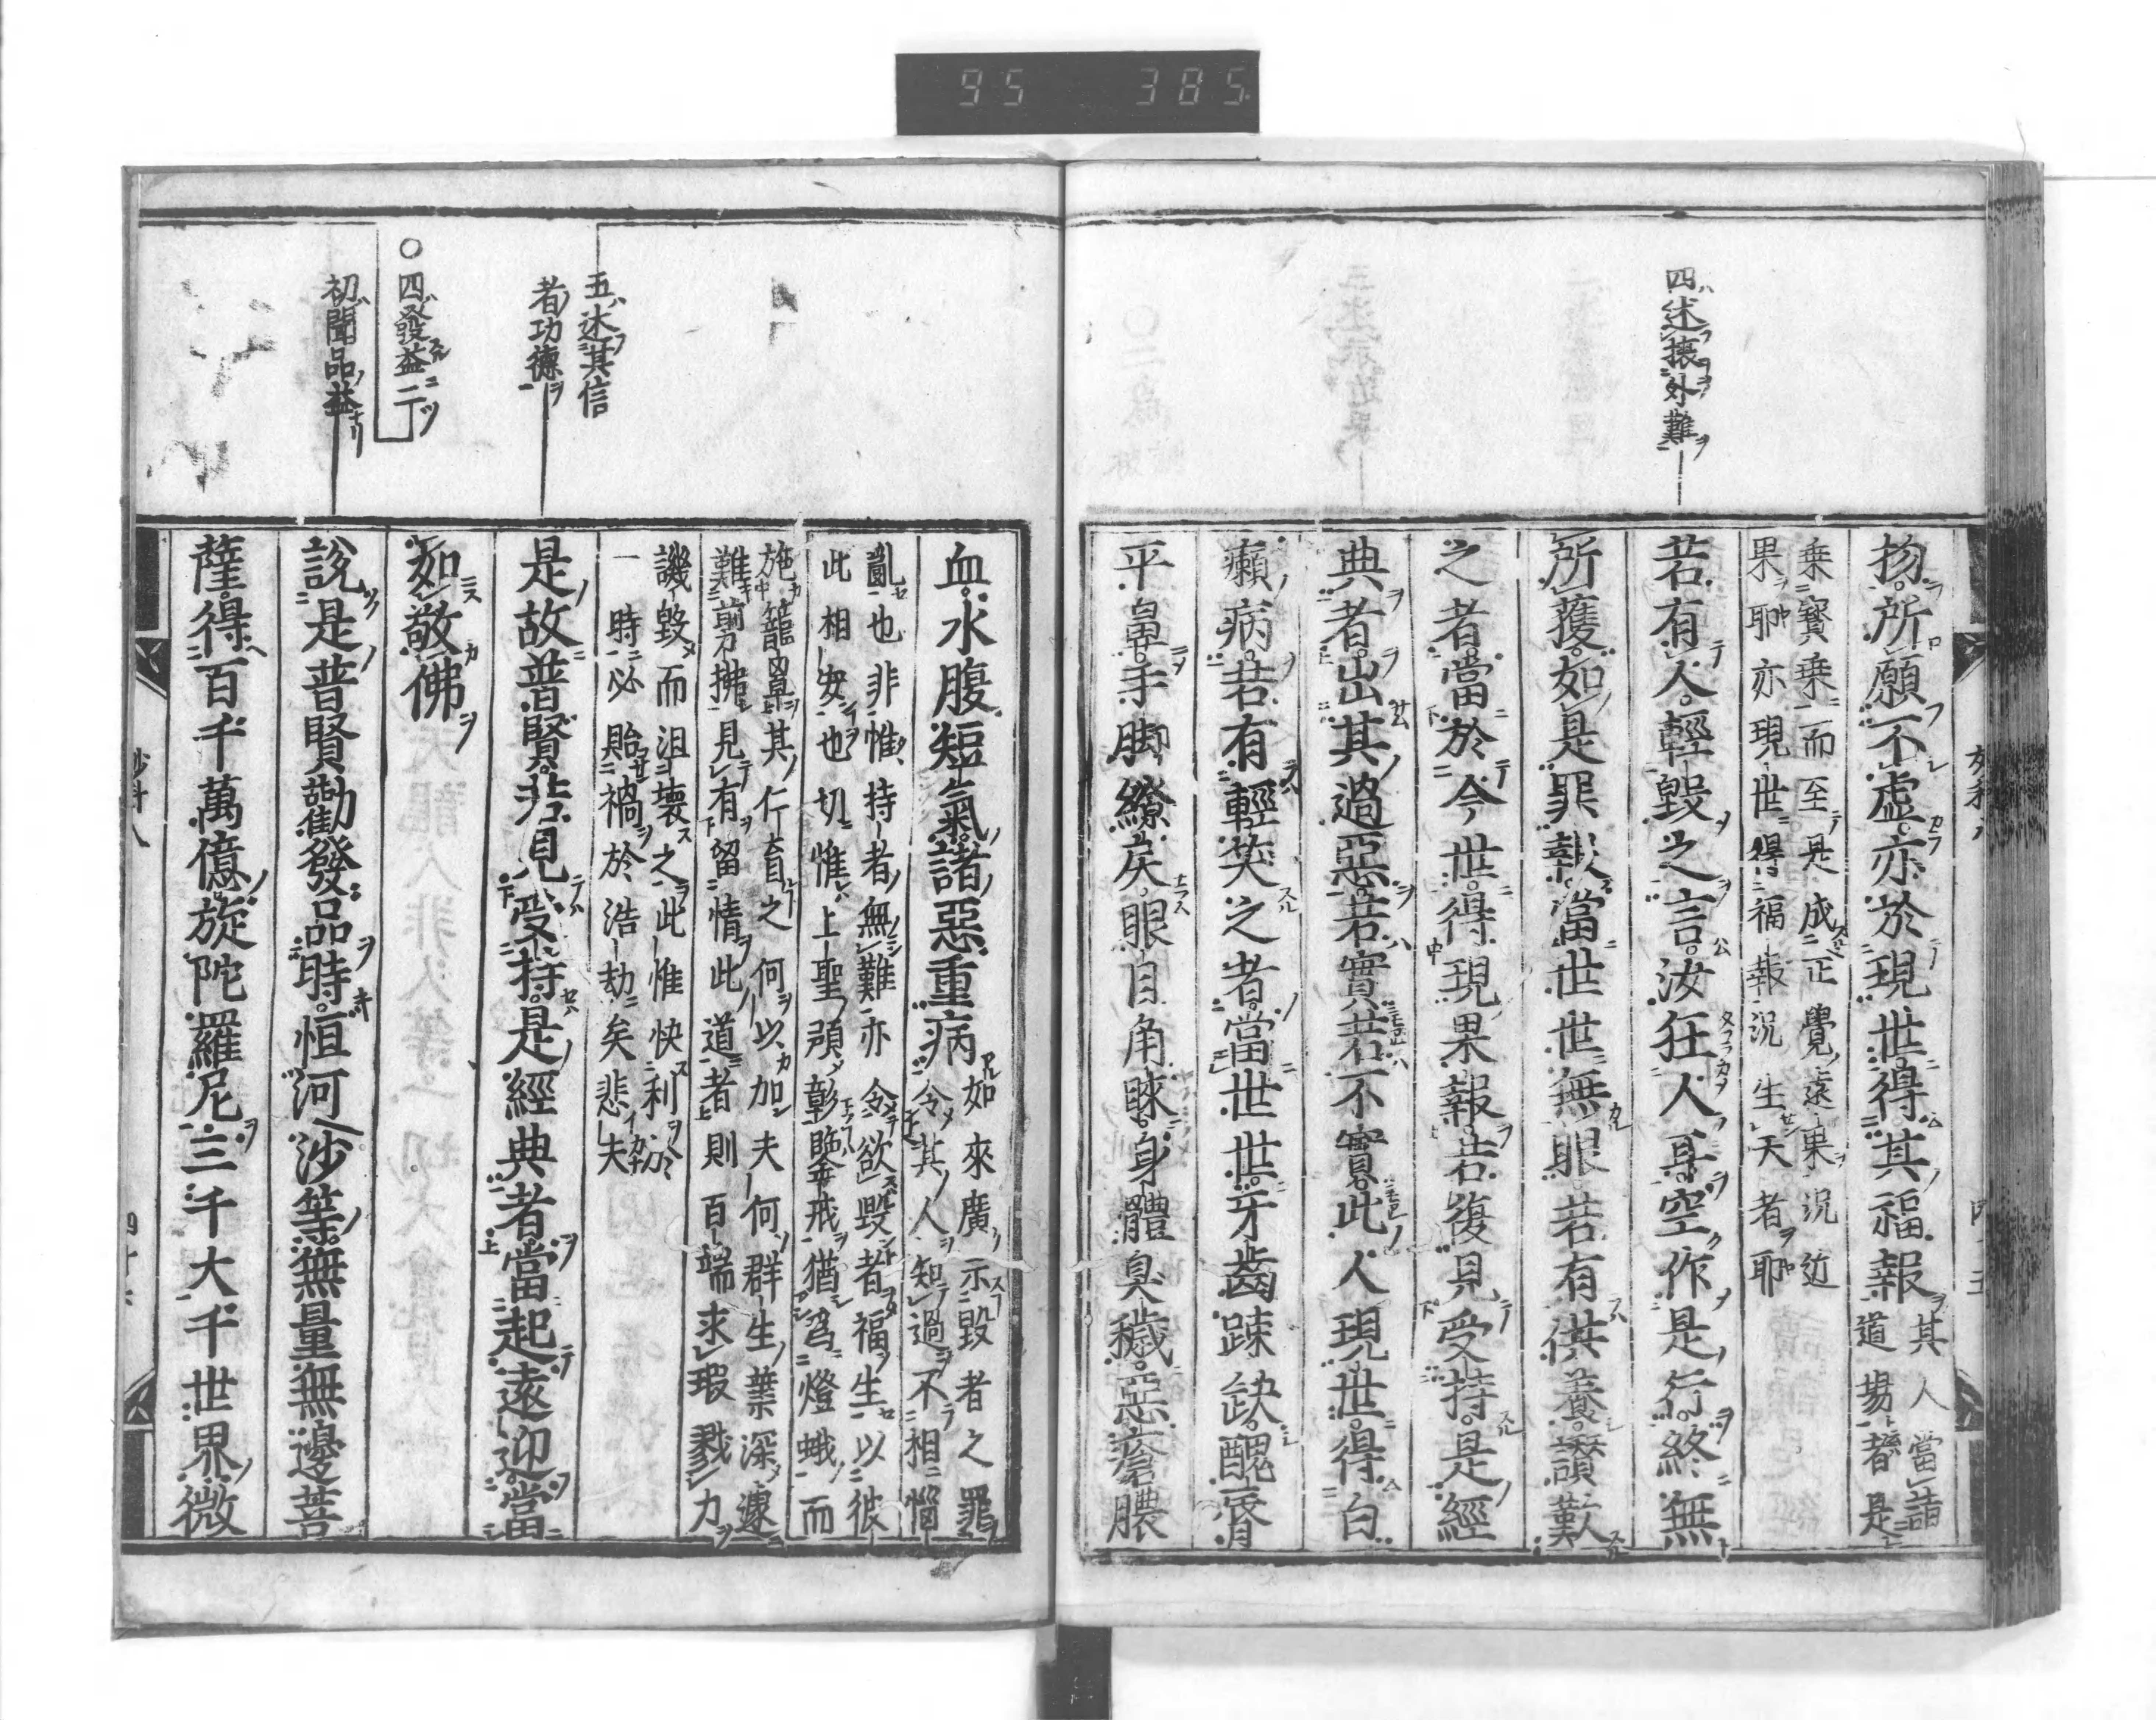 95 385
四述攘外難
物所願不虛亦於現世得其福報
其人當詣
道場者是
乗寳乗而至是成正覺遠果況近
果耶亦現世得福報況生天者耶
若有人輕毀之言汝狂人耳空作是行終無
所獲如是罪報當世世無眼若有供養讚歎
之者當於今世得現果報若復見受持是經
典者出其過惡若實若不實此人現世得白
癩病若有輕笑之者當世世牙齒踈缺醜脣
平鼻手脚繚戾眼目角睞身體臭穢惡瘡膿
五述其信
者功德
○四發益二
初聞品益
血水腹短氣諸惡重病
如來廣示毀者之罪
令其人知過不相惱
亂也非惟持者無難亦令欲毀者福生以彼
此相安也切惟上聖頋彰墜戒猶爲燈蛾而
施籠罩其行育之何以加夫何群生業深遽
難剪拂見有留情此道者則百端求瑕戮力
譏毀而沮壊之此惟快利於
一時必貽禍於浩劫矣悲夫
是故普賢若見受持是經典者當起遠迎當
如敬佛
說是普賢勸發品時恒河沙等無量無邊菩
薩得百千萬億旋陀羅尼三千大千世界微